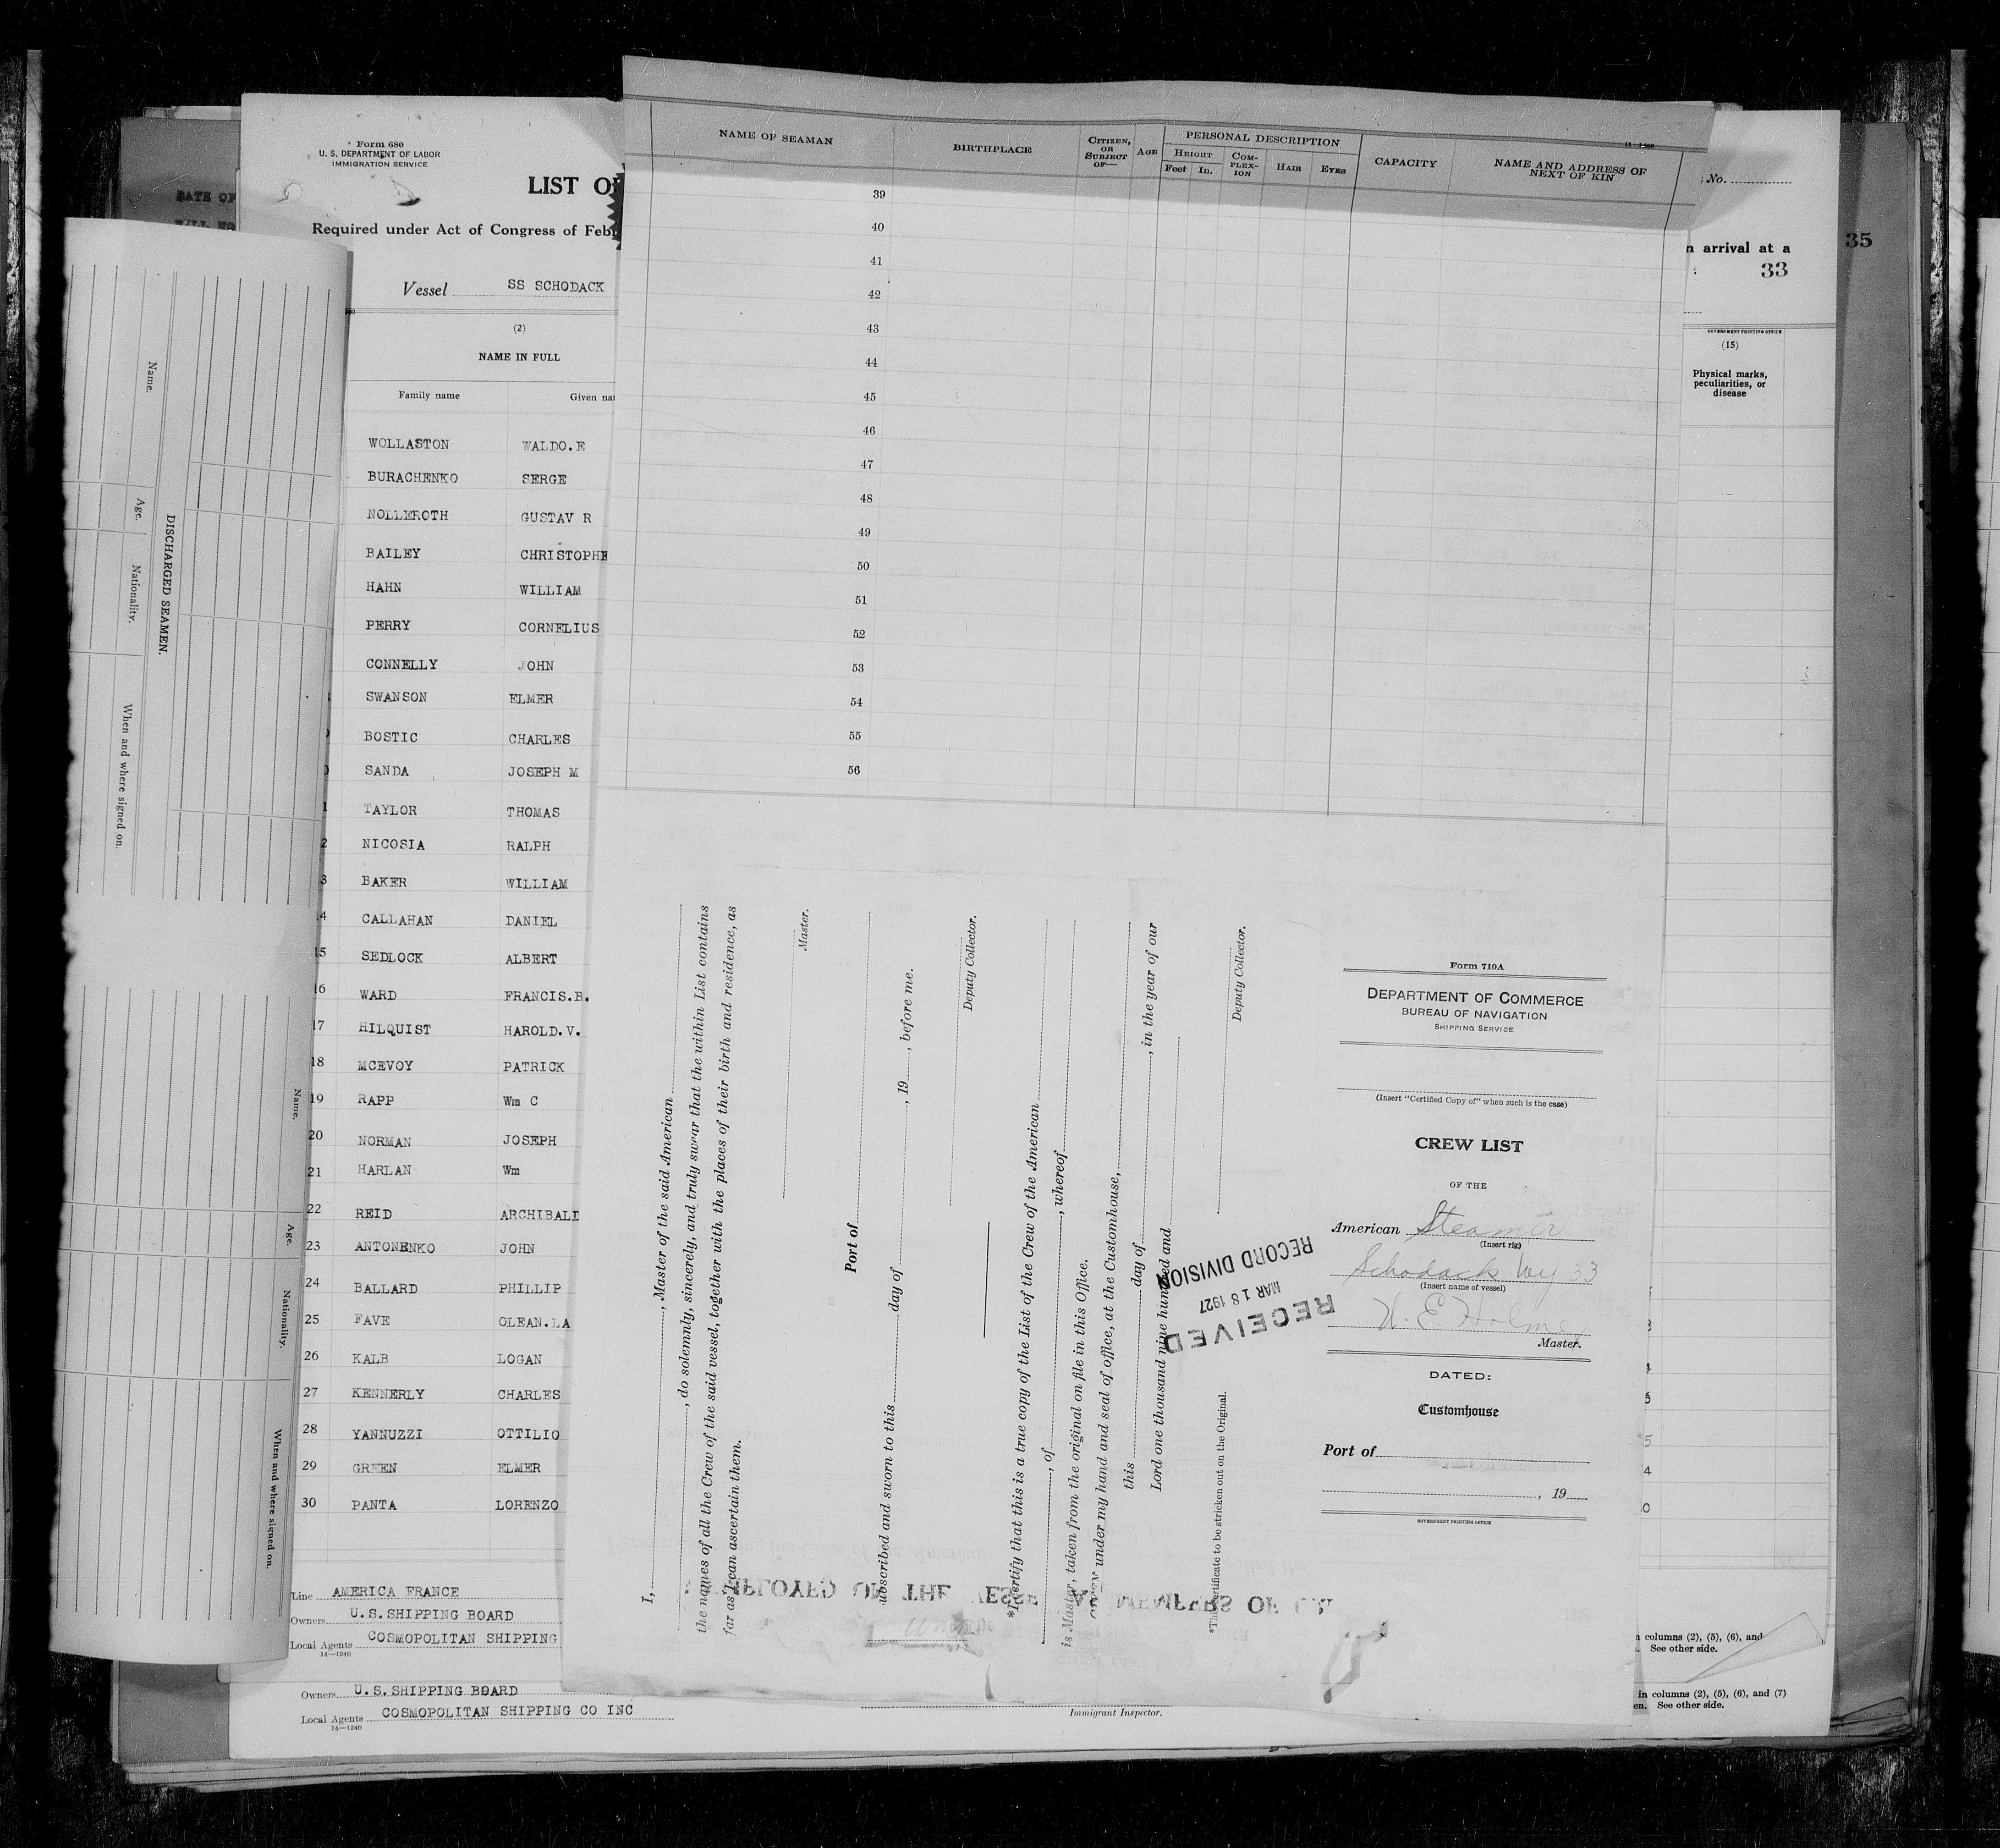 Form 680
U. S. DEPARTMENT OF LABOR
IMMIGRATION SERVICE
LIST OF
Required under Act of Congress of Feb
Vessel SS SCHODACK
(2)
NAME IN FULL
Family name Given na
WOLLASTON WALDO.E
BURACHENKO SERGE
NOLLEROTH GUSTAV R
BAILEY CHRISTOPHE
HAHN WILLIAM
PERRY CORNELIUS
CONNELLY JOHN
SWANSON ELMER
BOSTIC CHARLES
SANDA JOSEPH M
TAYLOR THOMAS
NICOSIA RALPH
BAKER WILLIAM
CALLAHAN DANIEL
SEDLOCK ALBERT
WARD FRANCIS.B.
HILQUIST HAROLD.V.
18 MCEVOY PATRICK
19 RAPP Wm C
20 NORMAN JOSEPH
21 HARLAN Wm
22 REID ARCHIBALD
23 ANTONENKO JOHN
24 BALLARD PHILLIP
25 FAVE OLEAN.LA
26 KALB LOGAN
27 KENNERLY CHARLES
28 YANNUZZI OTTILIO
29 GREEN ELMER
30 PANTA LORENZO
Line AMERICA FRANCE
Owners U.S.SHIPPING BOARD
Local Agents COSMOPOLITAN SHIPPING
14—1240
Owners U.S.SHIPPING BOARD
Local Agents COSMOPOLITAN SHIPPING CO INC
14—1240
Immigrant Inspector.
DATE OF
DISCHARGED SEAMEN.
Name. Age. Nationality. When and where signed on.
Name. Age. Nationality. When and where signed on.
NAME OF SEAMAN BIRTHPLACE CITIZEN, OR SUBJECT OF— AGE PERSONAL DESCRIPTION CAPACITY NAME AND ADDRESS OF NEXT OF KIN
HEIGHT COM-PLEX-ION HAIR EYES
Feet In.
39
40
41
42
43
44
45
46
47
48
49
50
51
52
53
54
55
56
No.
n arrival at a
33
35
GOVERNMENT PRINTING OFFICE
(15)
Physical marks,
peculiarities, or
disease
I, , Master of the said American
, do solemnly, sincerely, and truly swear that the within List contains
the names of all the Crew of the said vessel, together with the places of their birth and residence, as
far as I can ascertain them.
Master.
Port of
ubscribed and sworn to this day of , 19 , before me.
Deputy Collector.
*I certify that this is a true copy of the List of the Crew of the American
, of , whereof
is Master, taken from the original on file in this Office.
under my hand and seal of office, at the Customhouse,
this day of , in the year of our
Lord one thousand nine hundred and
Deputy Collector.
*This certificate to be stricken out on the Original.
RECEIVED
MAR 18 1927
RECORD DIVISION
Form 710A
DEPARTMENT OF COMMERCE
BUREAU OF NAVIGATION
SHIPPING SERVICE
(Insert "Certified Copy of" when such is the case)
CREW LIST
OF THE
American Steamer
(Insert rig)
Schodack Voy 33
(Insert name of vessel)
W. E Holmes
Master.
DATED:
Customhouse
Port of
, 19
GOVERNMENT PRINTING OFFICE
EMPLOYED ON THE VESSE AS MEMBERS OF
n columns (2), (5), (6), and
See other side.
in columns (2), (5), (6), and (7)
en. See other side.